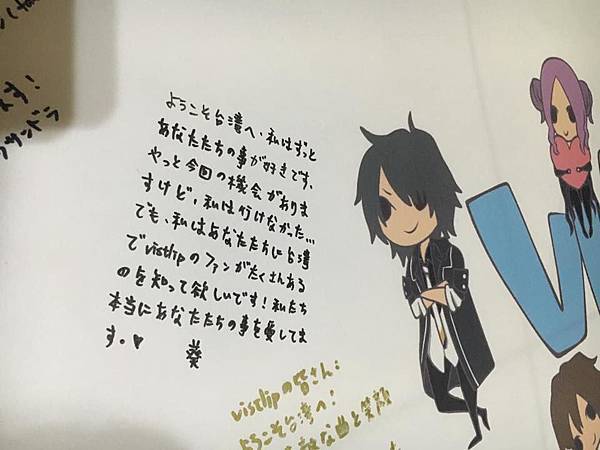 す!
サンドラ
ようこそ台湾へ、私はずっと
あなたたちの事が好きです、
やっと今回の機会がありま
すけど、私は行けなかった…
でも、私はあなたたちに台湾
でvistlipのファンがたくさんある
のを知って欲しいです!私たち
本当にあなたたちの事を愛してま
す。♥
葵
vistlipの皆さん:
ようこそ台湾へ!
な曲と笑顔